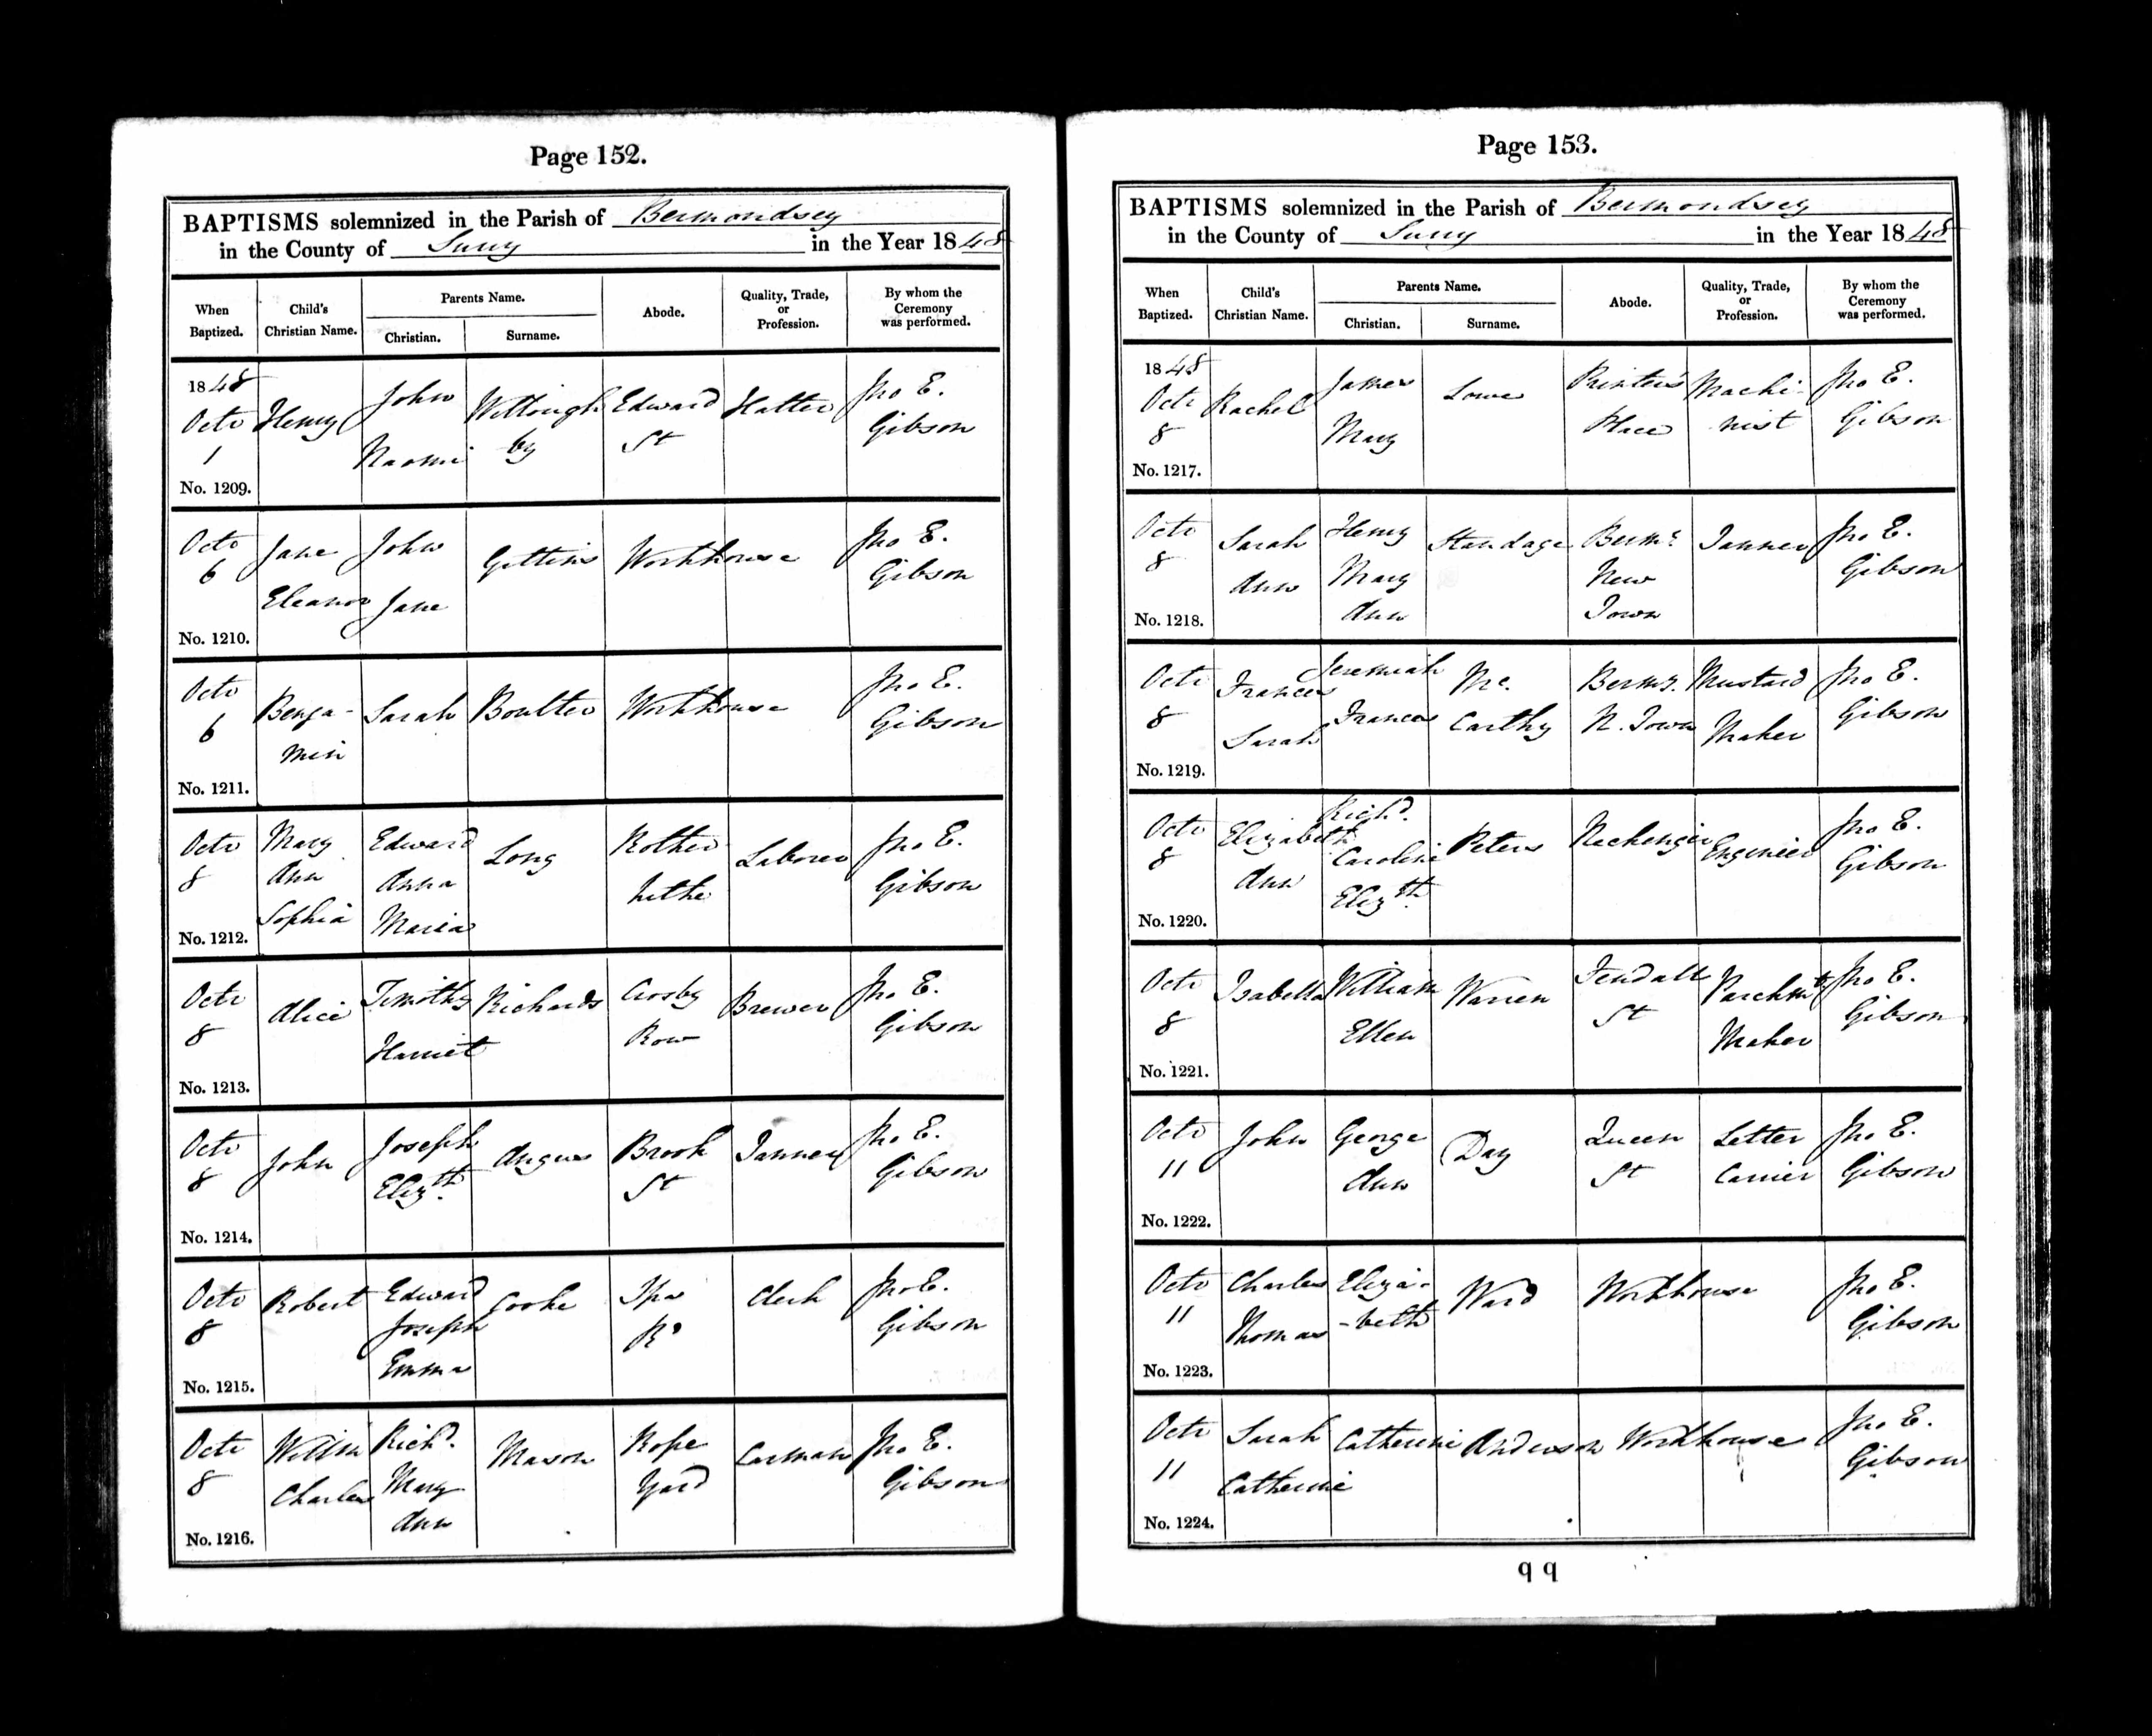 Page 152.
BAPTISMS solemnized in the Parish of Bermondsey
in the County of Surry in the Year 1848
When Baptized. Child's Christian Name. Parents Name. Christian. Surname. Abode. Quality, Trade, or Profession. By whom the Ceremony was performed.
1848 Octr 1 No. 1209. Henry John Naomi Willough by Edward St Hatter Jno E. Gibson
Octr 6 No. 1210. Jane Eleanor John Jane Gittins Workhouse Jno E. Gibson
Octr 6 No. 1211. Benja- min Sarah Boulter Workhouse Jno E. Gibson
Octr 8 No. 1212. Mary Ann Sophia Edward Anna Maria Long Rother hithe Laborer Jno E. Gibson
Octr 8 No. 1213. Alice Timothy Harriet Richards Crosby Row Brewer Jno E. Gibson
Octr 8 No. 1214. John Joseph Elizth. Angus Brook St Tanner Jno E. Gibson
Octr 8 No. 1215. Robert Edward Joseph Emma Cooke Spa Rd Clerk Jno E. Gibson
Octr 8 No. 1216. Willm Charles Richd. Mary Ann Mason Rope Yard Carman Jno E. Gibson
Page 153.
BAPTISMS solemnized in the Parish of Bermondsey
in the County of Surry in the Year 1848
When Baptized. Child's Christian Name. Parents Name. Christian. Surname. Abode. Quality, Trade, or Profession. By whom the Ceremony was performed.
1848 Octr 8 No. 1217. Rachel James Mary Lowe Printers Place Machi- nist Jno E. Gibson
Octr 8 No. 1218. Sarah Ann Henry Mary Ann Standage Bermy New Town Tanner Jno E. Gibson
Octr 8 No. 1219. Frances Sarah Jeremiah Frances Mc. Carthy Bermy. N. Town Mustard Maker Jno E. Gibson
Octr 8 No. 1220. Elizabeth Ann Richd. Caroline Elizth. Peters Neckenger Engineer Jno E. Gibson
Octr 8 No. 1221. Isabella William Ellen Warren Fendall St Parchmt Maker Jno E. Gibson
Octr 11 No. 1222. John George Ann Day Queen St Letter Carrier Jno E. Gibson
Octr 11 No. 1223. Charles Thomas Eliza- -beth Ward Workhouse Jno E. Gibson
Octr 11 No. 1224. Sarah Catherine Catherine Anderson Workhouse Jno E. Gibson
q q